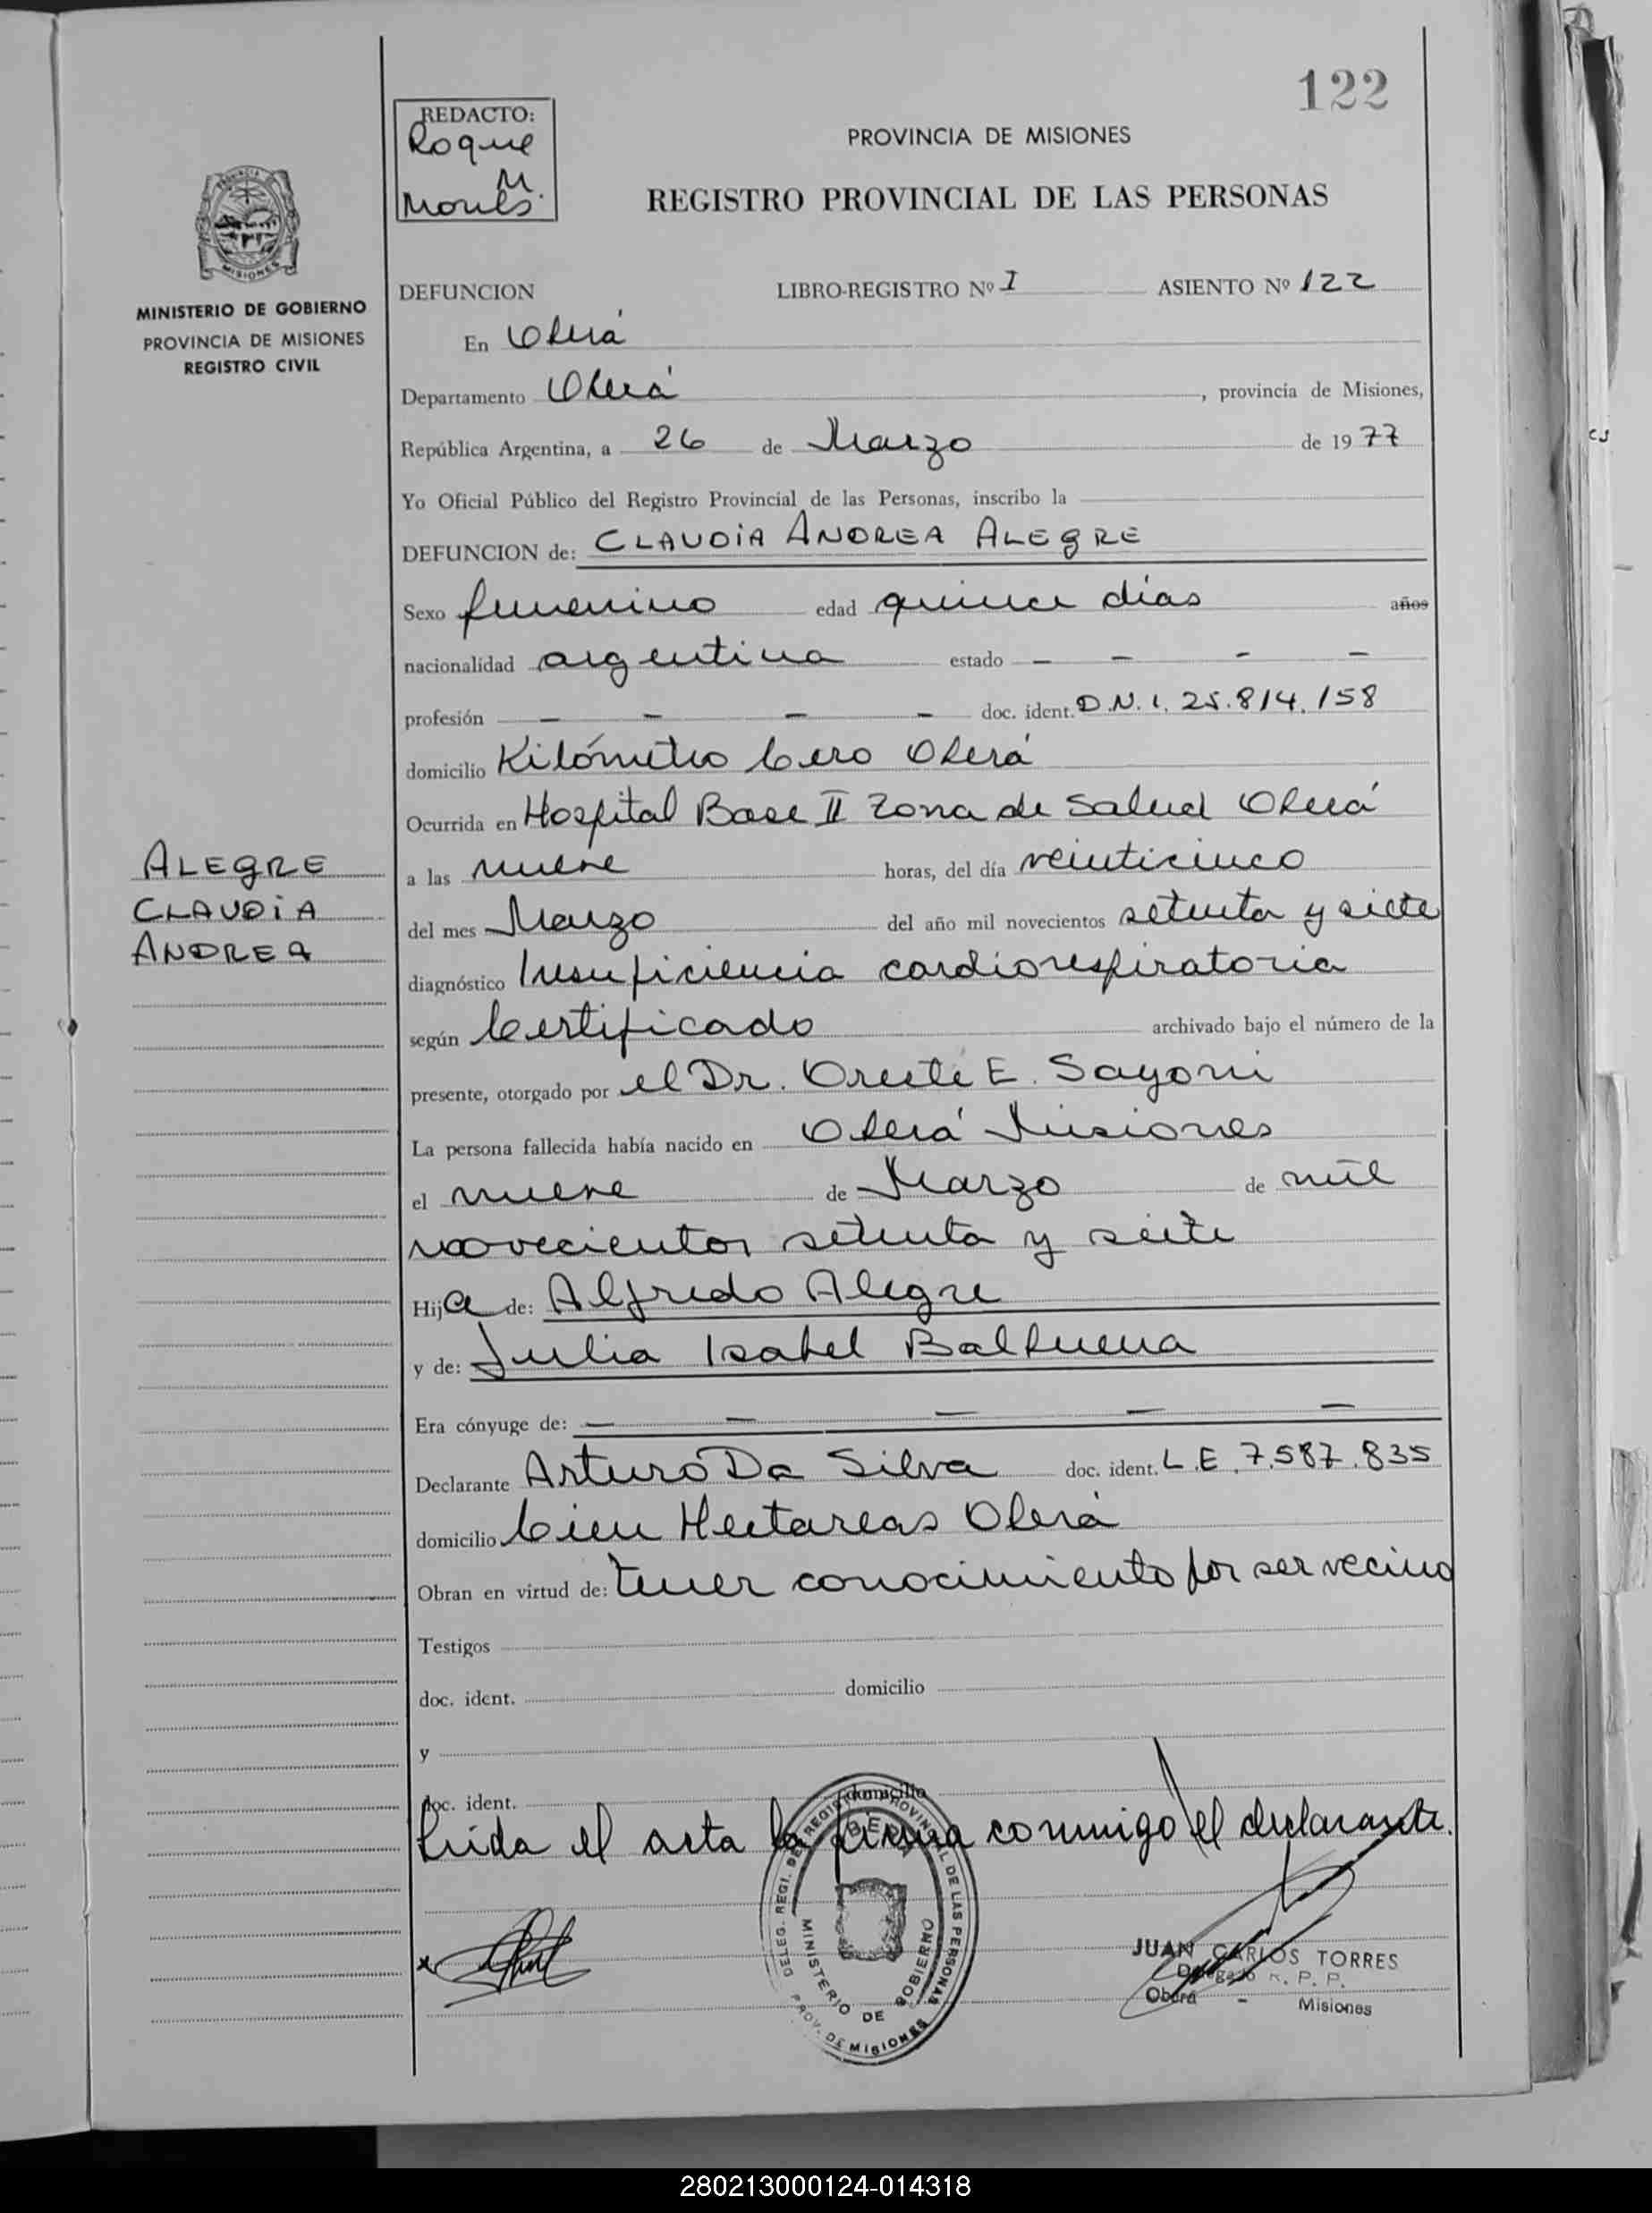 122
REDACTO:
Roque
M.
PROVINCIA DE MISIONES
REGISTRO PROVINCIAL DE LAS PERSONAS
MISIONES
MINISTERIO DE GOBIERNO
PROVINCIA DE MISIONES
REGISTRO CIVIL
DEFUNCION LIBRO-REGISTRO Nº I ASIENTO Nº 122
En Oberá
Departamento Oberá, provincia de Misiones,
República Argentina, a 26 de Marzo de 1977
Yo Oficial Público del Registro Provincial de las Personas, inscribo la
DEFUNCION de: CLAUDIA ANDREA ALEGRE
Sexo femenino edad quince días años
nacionalidad argentina estado - - - -
profesión - - - - doc. ident. D.N.I. 25.814.158
domicilio Kilómetro Cero Oberá
Ocurrida en Hospital Base II Zona de Salud Oberá
a las nueve horas, del día veinticinco
del mes Marzo del año mil novecientos setenta y siete
diagnóstico Insuficiencia cardiorespiratoria
según Certificado archivado bajo el número de la
presente, otorgado por el Dr. Oreste E. Sayoni
La persona fallecida había nacido en Oberá Misiones
el nueve de Marzo de mil
novecientos setenta y siete
Hija de: Alfredo Alegre
y de: Julia Isabel Balbuena
Era cónyuge de: - - - - -
Declarante Arturo Da Silva doc. ident. L.E. 7.587.835
domicilio Cien Hectareas Oberá
Obran en virtud de: tener conocimiento por ser vecino
Testigos
doc. ident. domicilio
y
doc. ident. domicilio
Leida el acta la firma conmigo el declarante.
ALEGRE
CLAUDIA
ANDREA
DELEG. REGI. DEL REGISTRO PROVINCIAL DE LAS PERSONAS
OBERA
MINISTERIO DE GOBIERNO
PROV. DE MISIONES
JUAN CARLOS TORRES
Delegado R. P. P.
Oberá - Misiones
280213000124-014318